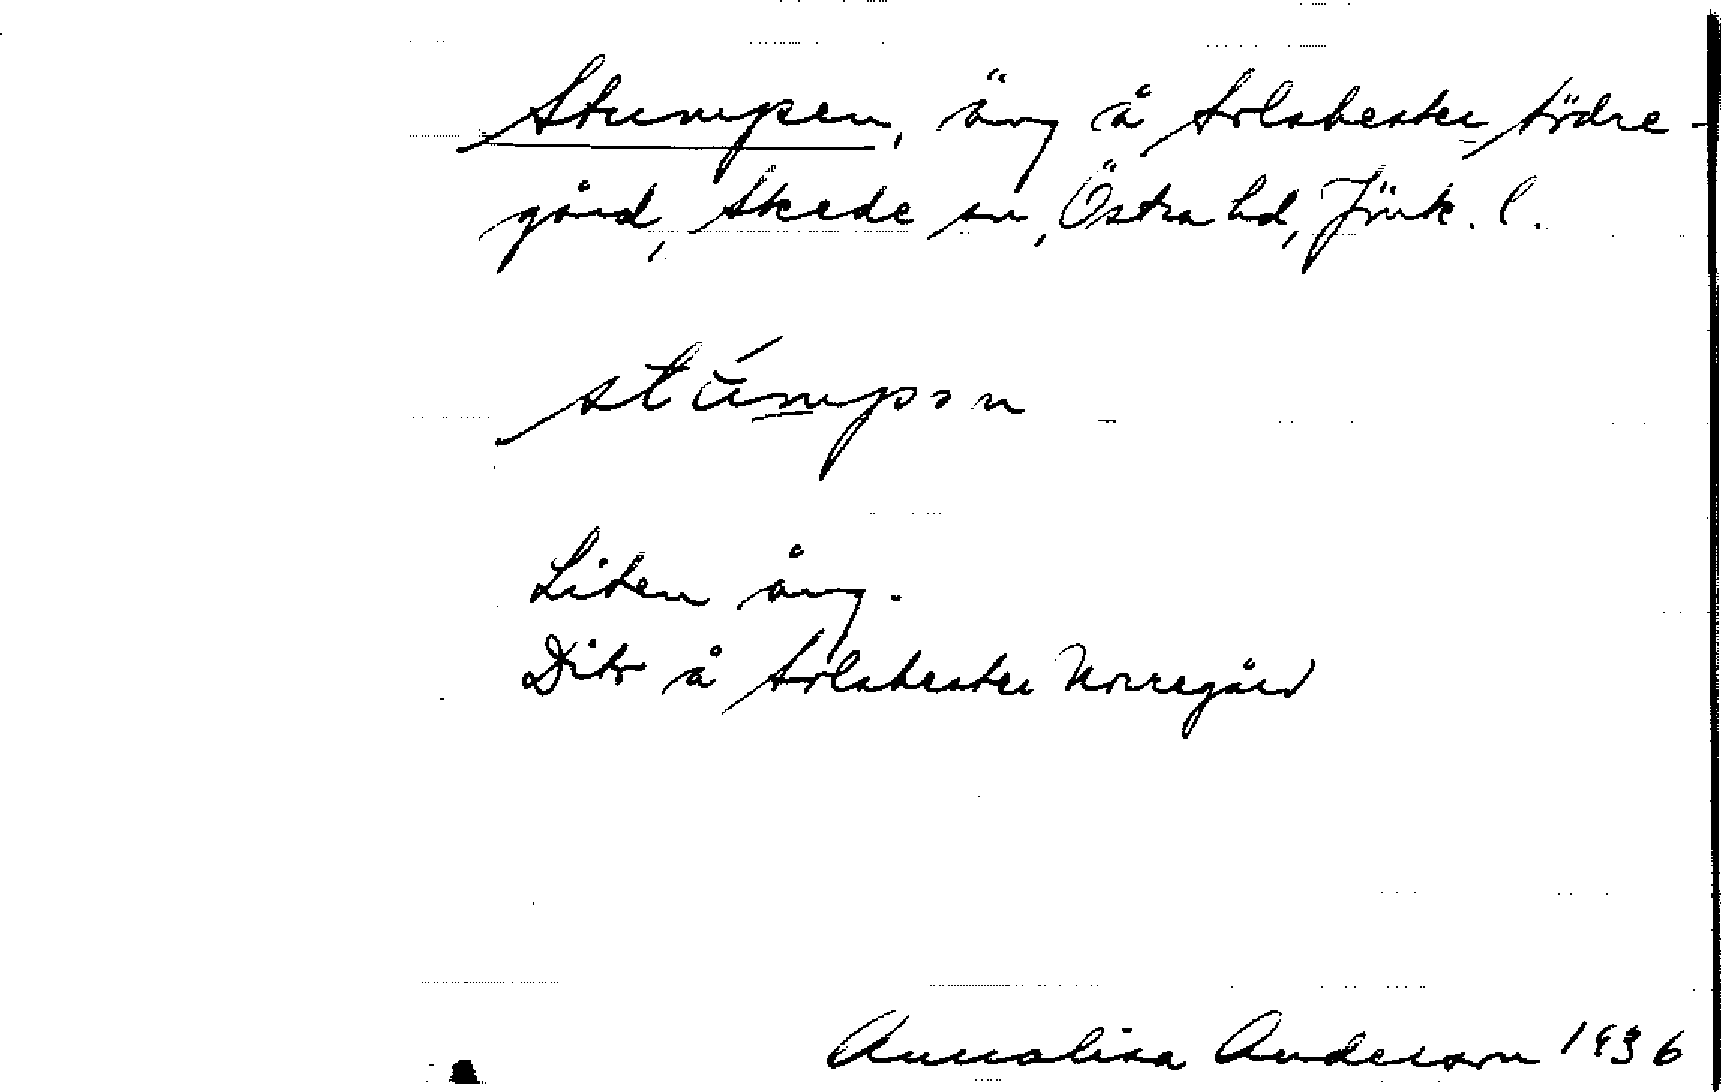 Stumpen, äng å Solabester Södre-
gård, Skede sn, Östra hd, Jönk. l.
stúmpən
Liten äng.
Dito å Solabester Norregård
Annalisa Anderson 1936